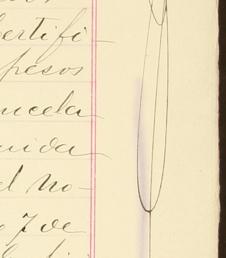 ertifi-
pesos
ncela
uida
l no-
7 de